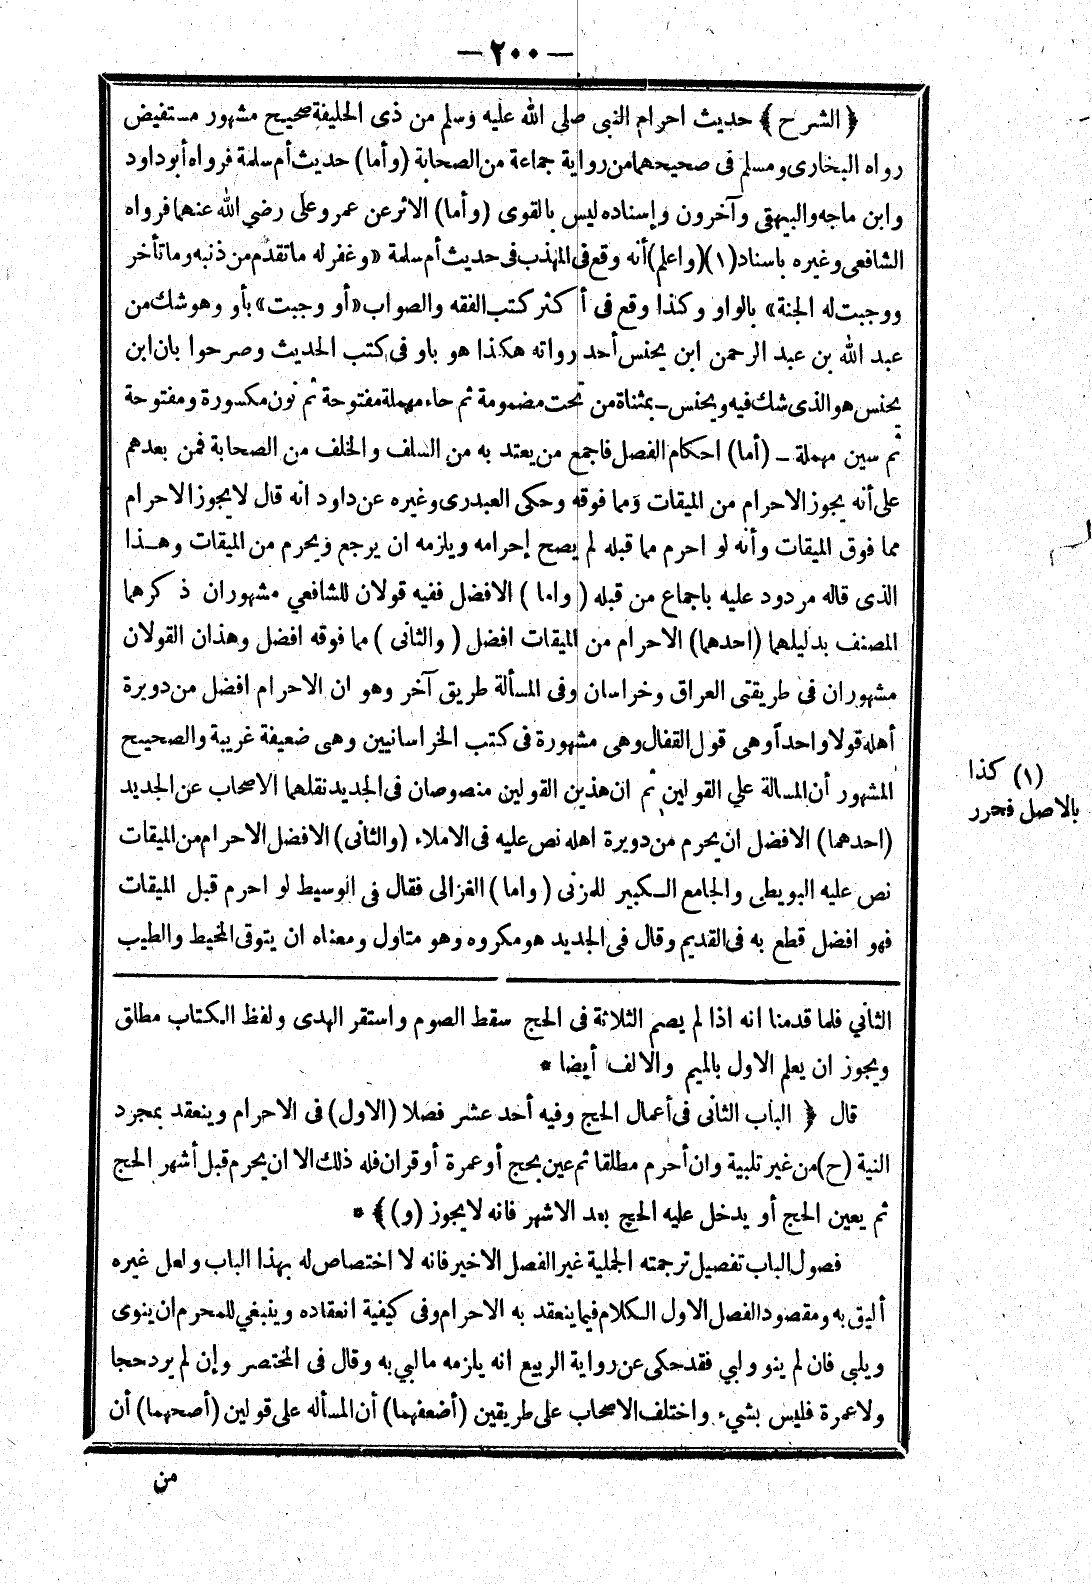 — ٢٠٠ —
﴿ الشرح ﴾ حديث احرام النبي صلى الله عليه وسلم من ذى الحليفة صحيح مشهور مستفيض
رواه البخارى ومسلم فى صحيحهما من رواية جماعة من الصحابة (وأما) حديث أم سلمة فرواه أبو داود
وابن ماجه والبيهقى وآخرون وإسناده ليس بالقوى (وأما) الاثر عن عمر وعلى رضي الله عنهما فرواه
الشافعى وغيره باسناد (١) (واعلم) أنه وقع فى المهذب فى حديث أم سلمة «وغفر له ما تقدم من ذنبه وما تأخر
ووجبت له الجنة» بالواو وكذا وقع فى أكثر كتب الفقه والصواب «أو وجبت» بأو وهو شك من
عبد الله بن عبد الرحمن ابن يحنس أحد رواته هكذا هو باو فى كتب الحديث وصرحوا بان ابن
يحنس هو الذى شك فيه ويحنس ـ بمثناة من تحت مضمومة ثم حاء مهملة مفتوحة ثم نون مكسورة ومفتوحة
ثم سين مهملة ـ (أما) احكام الفصل فاجمع من يعتد به من السلف والخلف من الصحابة فمن بعدهم
على أنه يجوز الاحرام من الميقات ومما فوقه وحكى العبدرى وغيره عن داود انه قال لا يجوز الاحرام
مما فوق الميقات وأنه لو احرم مما قبله لم يصح إحرامه ويلزمه ان يرجع ويحرم من الميقات وهـذا
الذى قاله مردود عليه باجماع من قبله (واما) الافضل ففيه قولان للشافعي مشهوران ذكرهما
المصنف بدليلهما (احدهما) الاحرام من الميقات افضل (والثانى) مما فوقه افضل وهذان القولان
مشهوران فى طريقتى العراق وخراسان وفى المسألة طريق آخر وهو ان الاحرام افضل من دويرة
أهله قولا واحداً وهى قول القفال وهى مشهورة فى كتب الخراسانيين وهى ضعيفة غريبة والصحيح
المشهور أن المسالة علي القولين ثم ان هذين القولين منصوصان فى الجديد نقلهما الاصحاب عن الجديد
(احدهما) الافضل ان يحرم من دويرة اهله نص عليه فى الاملاء (والثانى) الافضل الاحرام من الميقات
نص عليه البويطى والجامع الـكبير للمزنى (واما) الغزالى فقال فى الوسيط لو احرم قبل الميقات
فهو افضل قطع به فى القديم وقال فى الجديد هو مكروه وهو متاول ومعناه ان يتوقى المخيط والطيب
(١) كذا
بالاصل فحرر
الثاني فلما قدمنا انه اذا لم يصم الثلاثة فى الحج سقط الصوم واستقر الهدى ولفظ الكتاب مطلق
ويجوز ان يعلم الاول بالميم والالف أيضا *
قال ﴿ الباب الثانى فى أعمال الحج وفيه أحد عشر فصلا (الاول) فى الاحرام وينعقد بمجرد
النية (ح) من غير تلبية وان أحرم مطلقا ثم عين بحج أو عمرة أو قران فله ذلك الا ان يحرم قبل أشهر الحج
ثم يعين الحج أو يدخل عليه الحج بعد الاشهر فانه لا يجوز (و) ﴾ *
فصول الباب تفصيل ترجمته الجملية غير الفصل الاخير فانه لا اختصاص له بهذا الباب ولعل غيره
أليق به ومقصود الفصل الاول الـكلام فيما ينعقد به الاحرام وفى كيفية انعقاده وينبغي للمحرم ان ينوى
ويلبى فان لم ينو ولبي فقد حكى عن رواية الربيع انه يلزمه ما لبي به وقال فى المختصر وإن لم يرد حجا
ولا عمرة فليس بشيء واختلف الاصحاب على طريقين (أضعفهما) أن المسأله على قولين (أصحهما) أن
من